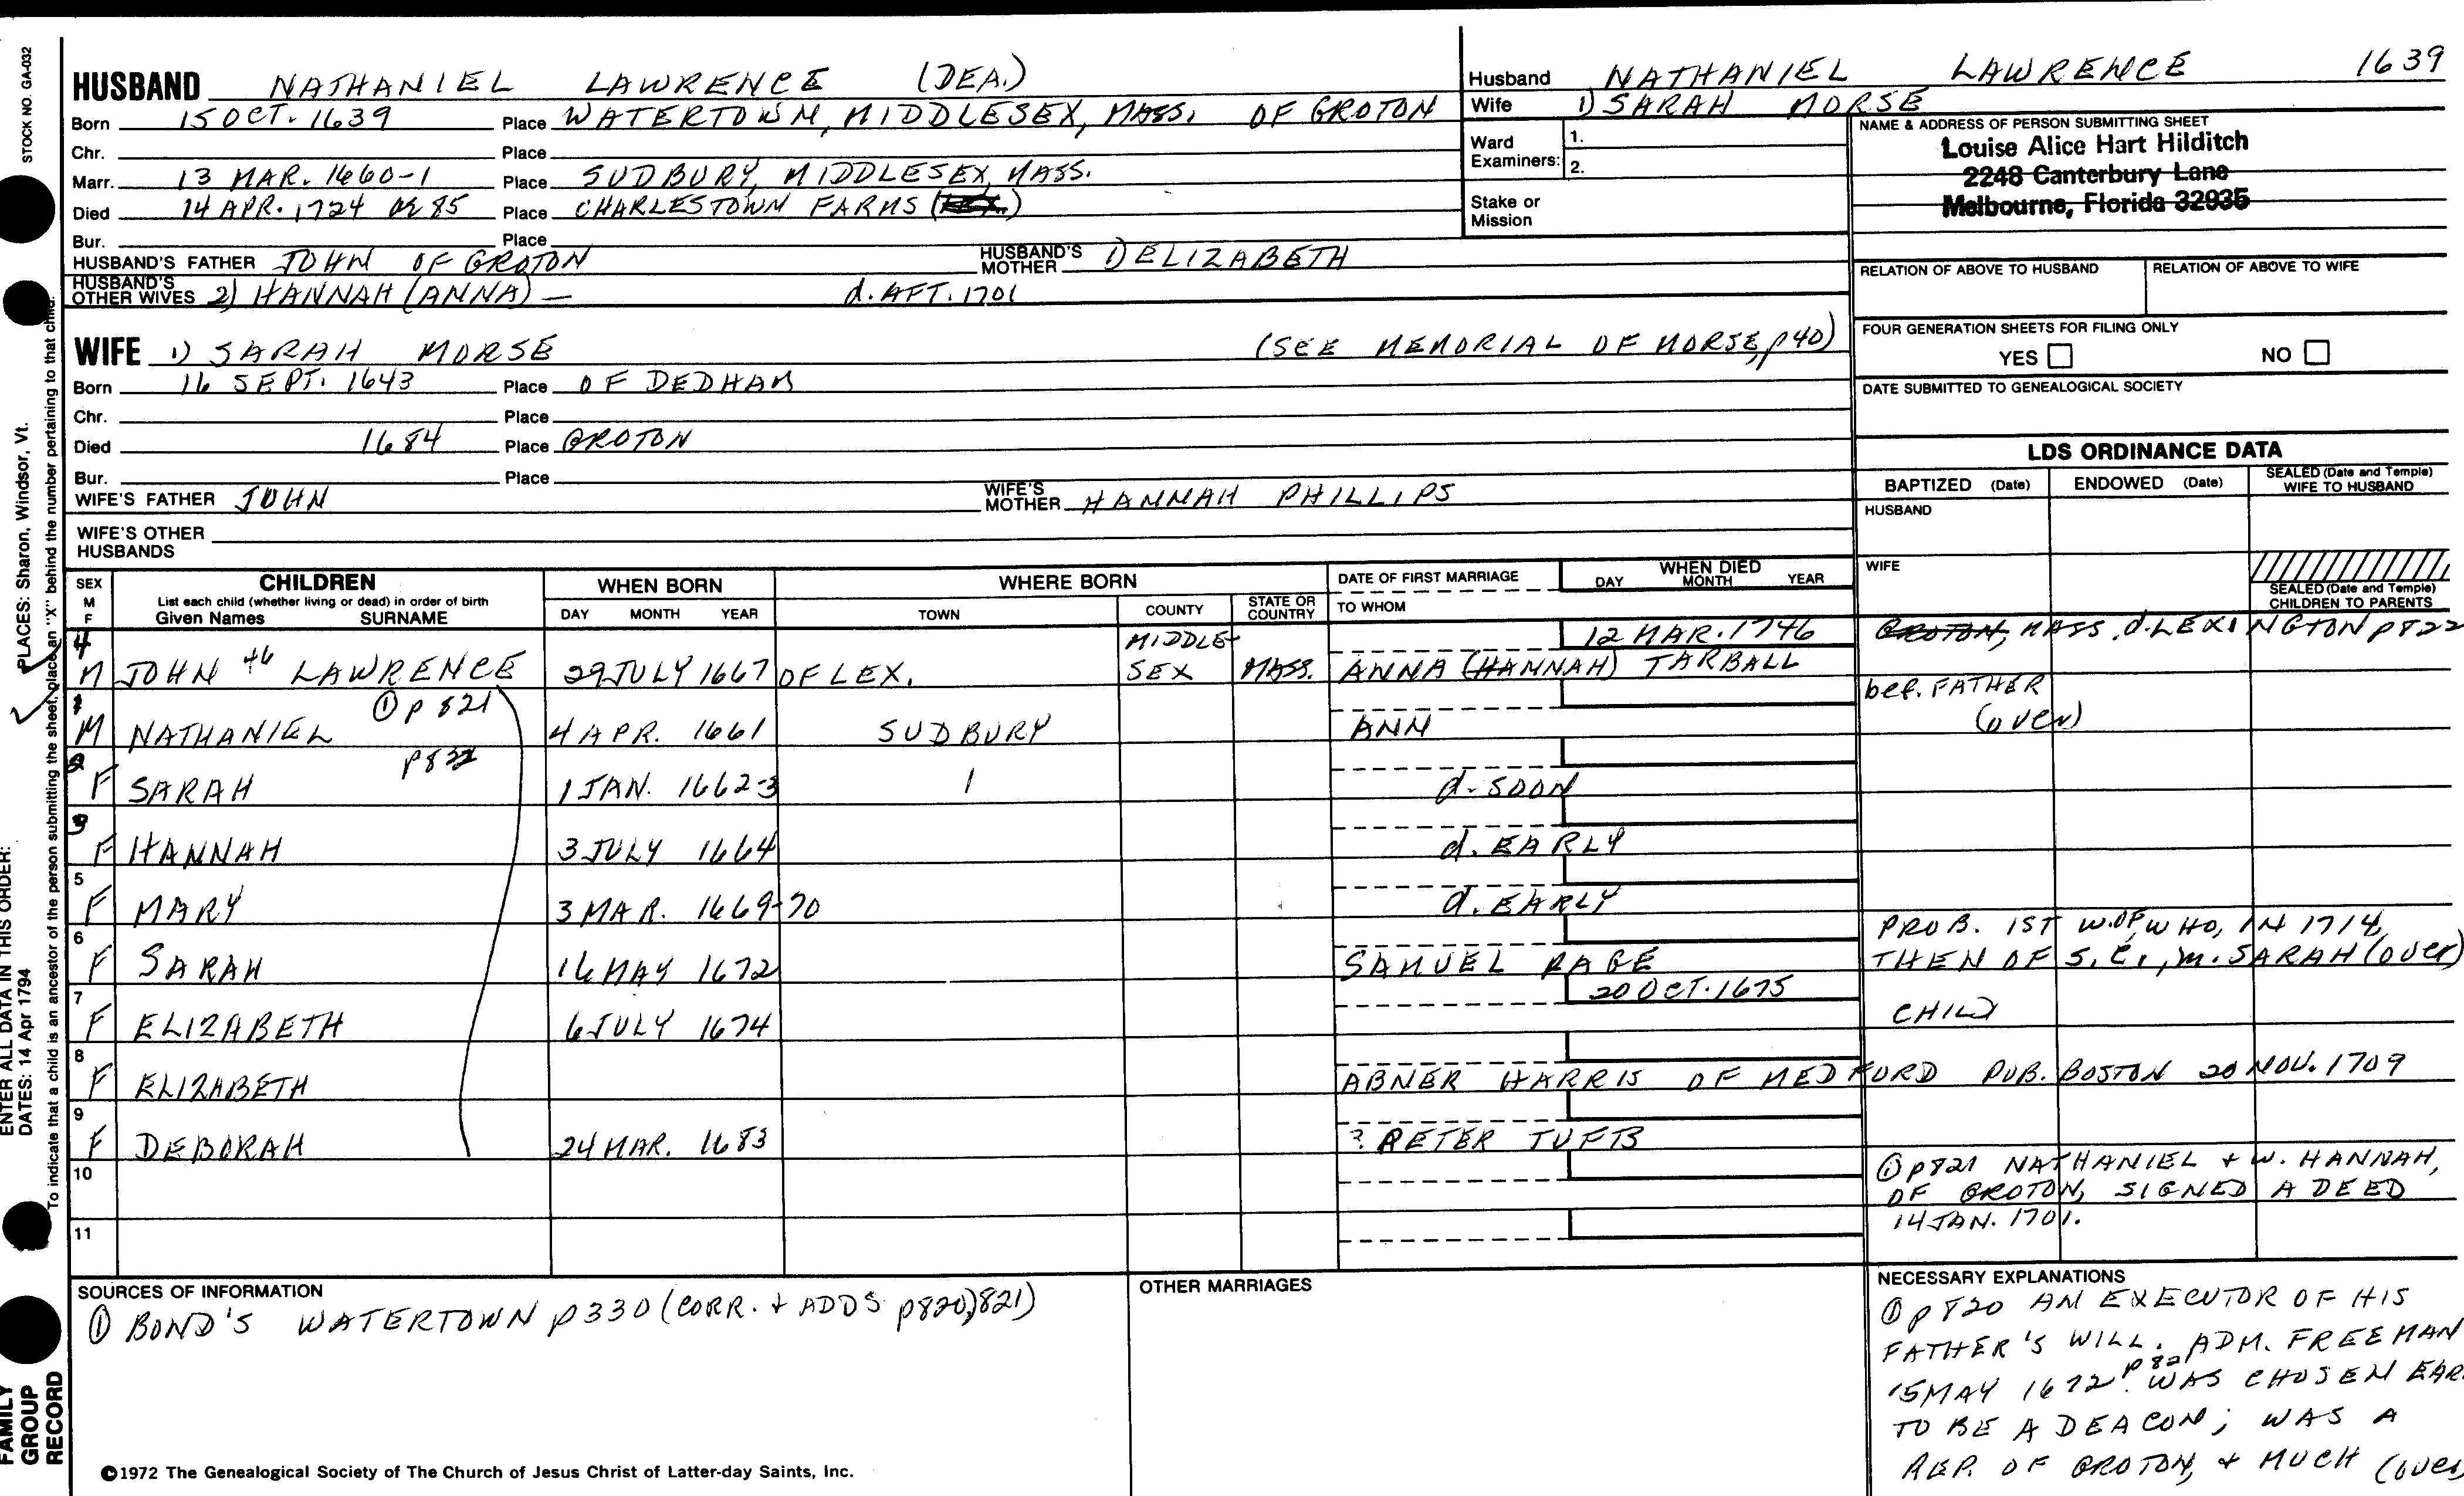 STOCK NO. GA-032
HUSBAND NATHANIEL LAWRENCE (DEA.)
Born 15 OCT. 1639 Place WATERTOWN, MIDDLESEX, MASS. OF GROTON
Chr. Place
Marr. 13 MAR. 1660-1 Place SUDBURY, MIDDLESEX, MASS.
Died 14 APR. 1724 OR 85 Place CHARLESTOWN FARMS (LEX.)
Bur. Place
HUSBAND'S FATHER JOHN OF GROTON HUSBAND'S MOTHER 1) ELIZABETH
HUSBAND'S OTHER WIVES 2) HANNAH (ANNA) — d. AFT. 1701
Husband NATHANIEL LAWRENCE 1639
Wife 1) SARAH MORSE
Ward Examiners: 1.
2.
Stake or Mission
NAME & ADDRESS OF PERSON SUBMITTING SHEET
Louise Alice Hart Hilditch
2248 Canterbury Lane
Melbourne, Florida 32935
RELATION OF ABOVE TO HUSBAND RELATION OF ABOVE TO WIFE
FOUR GENERATION SHEETS FOR FILING ONLY
YES NO
DATE SUBMITTED TO GENEALOGICAL SOCIETY
WIFE 1) SARAH MORSE (SEE MEMORIAL OF MORSE, p 40)
Born 16 SEPT. 1643 Place OF DEDHAM
Chr. Place
Died 1684 Place GROTON
Bur. Place
WIFE'S FATHER JOHN WIFE'S MOTHER HANNAH PHILLIPS
WIFE'S OTHER HUSBANDS
LDS ORDINANCE DATA
BAPTIZED (Date) ENDOWED (Date) SEALED (Date and Temple) WIFE TO HUSBAND
HUSBAND
WIFE
SEALED (Date and Temple) CHILDREN TO PARENTS
SEX M F CHILDREN List each child (whether living or dead) in order of birth Given Names SURNAME
WHEN BORN DAY MONTH YEAR
WHERE BORN TOWN COUNTY STATE OR COUNTRY
DATE OF FIRST MARRIAGE TO WHOM
WHEN DIED DAY MONTH YEAR
4 MIDDLE- 12 MAR. 1746 GROTON, MASS. d. LEXINGTON p 822
M JOHN +6 LAWRENCE 29 JULY 1667 OF LEX. SEX MASS. ANNA (HANNAH) TARBALL
1 M NATHANIEL ① p 821 4 APR. 1661 SUDBURY ANN bef. FATHER (over)
2 F SARAH p 822 1 JAN. 1662-3 d. SOON
3 F HANNAH 3 JULY 1664 d. EARLY
5 F MARY 3 MAR. 1669-70 d. EARLY
6 F SARAH 16 MAY 1672 SAMUEL PAGE PROB. 1ST W. OF, WHO, IN 1714, THEN OF S. C., m. SARAH (over)
7 F ELIZABETH 6 JULY 1674 20 OCT. 1675 CHILD
8 F ELIZABETH ABNER HARRIS OF MEDFORD PUB. BOSTON 20 NOV. 1709
9 F DEBORAH 24 MAR. 1683 ? PETER TUFTS
10 ① p 821 NATHANIEL + W. HANNAH,
OF GROTON, SIGNED A DEED
11 14 JAN. 1701.
SOURCES OF INFORMATION
① BOND'S WATERTOWN p 330 (CORR. + ADDS p820, 821)
OTHER MARRIAGES
NECESSARY EXPLANATIONS
① p 820 AN EXECUTOR OF HIS
FATHER'S WILL. ADM. FREEMAN
15 MAY 1672. p 821 WAS CHOSEN EAR
TO BE A DEACON; WAS A
REP. OF GROTON, + MUCH (over)
©1972 The Genealogical Society of The Church of Jesus Christ of Latter-day Saints, Inc.
FAMILY GROUP RECORD
ENTER ALL DATA IN THIS ORDER:
DATES: 14 Apr 1794
PLACES: Sharon, Windsor, Vt.
To indicate that a child is an ancestor of the person submitting the sheet, place an "X" behind the number pertaining to that child.